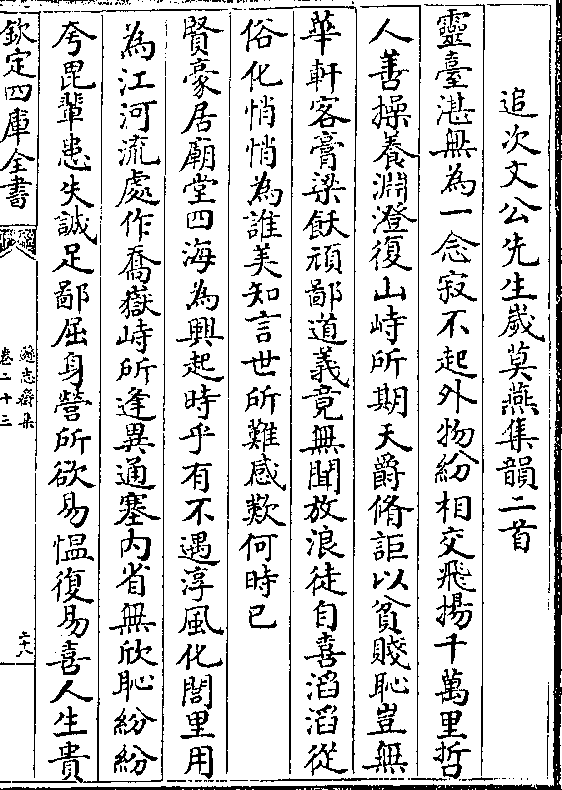 追次文公先生歲莫燕集韻二首
靈臺湛無為一念寂不起外物紛相交飛揚千萬里哲
人善操養淵澄復山峙所期天爵脩詎以貧賤恥豈無
華軒客膏粱飫頑鄙道義竟無聞放浪徒自喜滔滔從
俗化悄悄為誰美知言世所難感歎何時已
賢豪居廟堂四海為興起時乎有不遇淳風化閭里用
為江河流處作喬嶽峙所逢異通塞內省無欣恥紛紛
夸毗輩患失誠足鄙屈身營所欲易慍復易喜人生貴
欽定四庫全書
遜志齋集
卷二十三
二十八